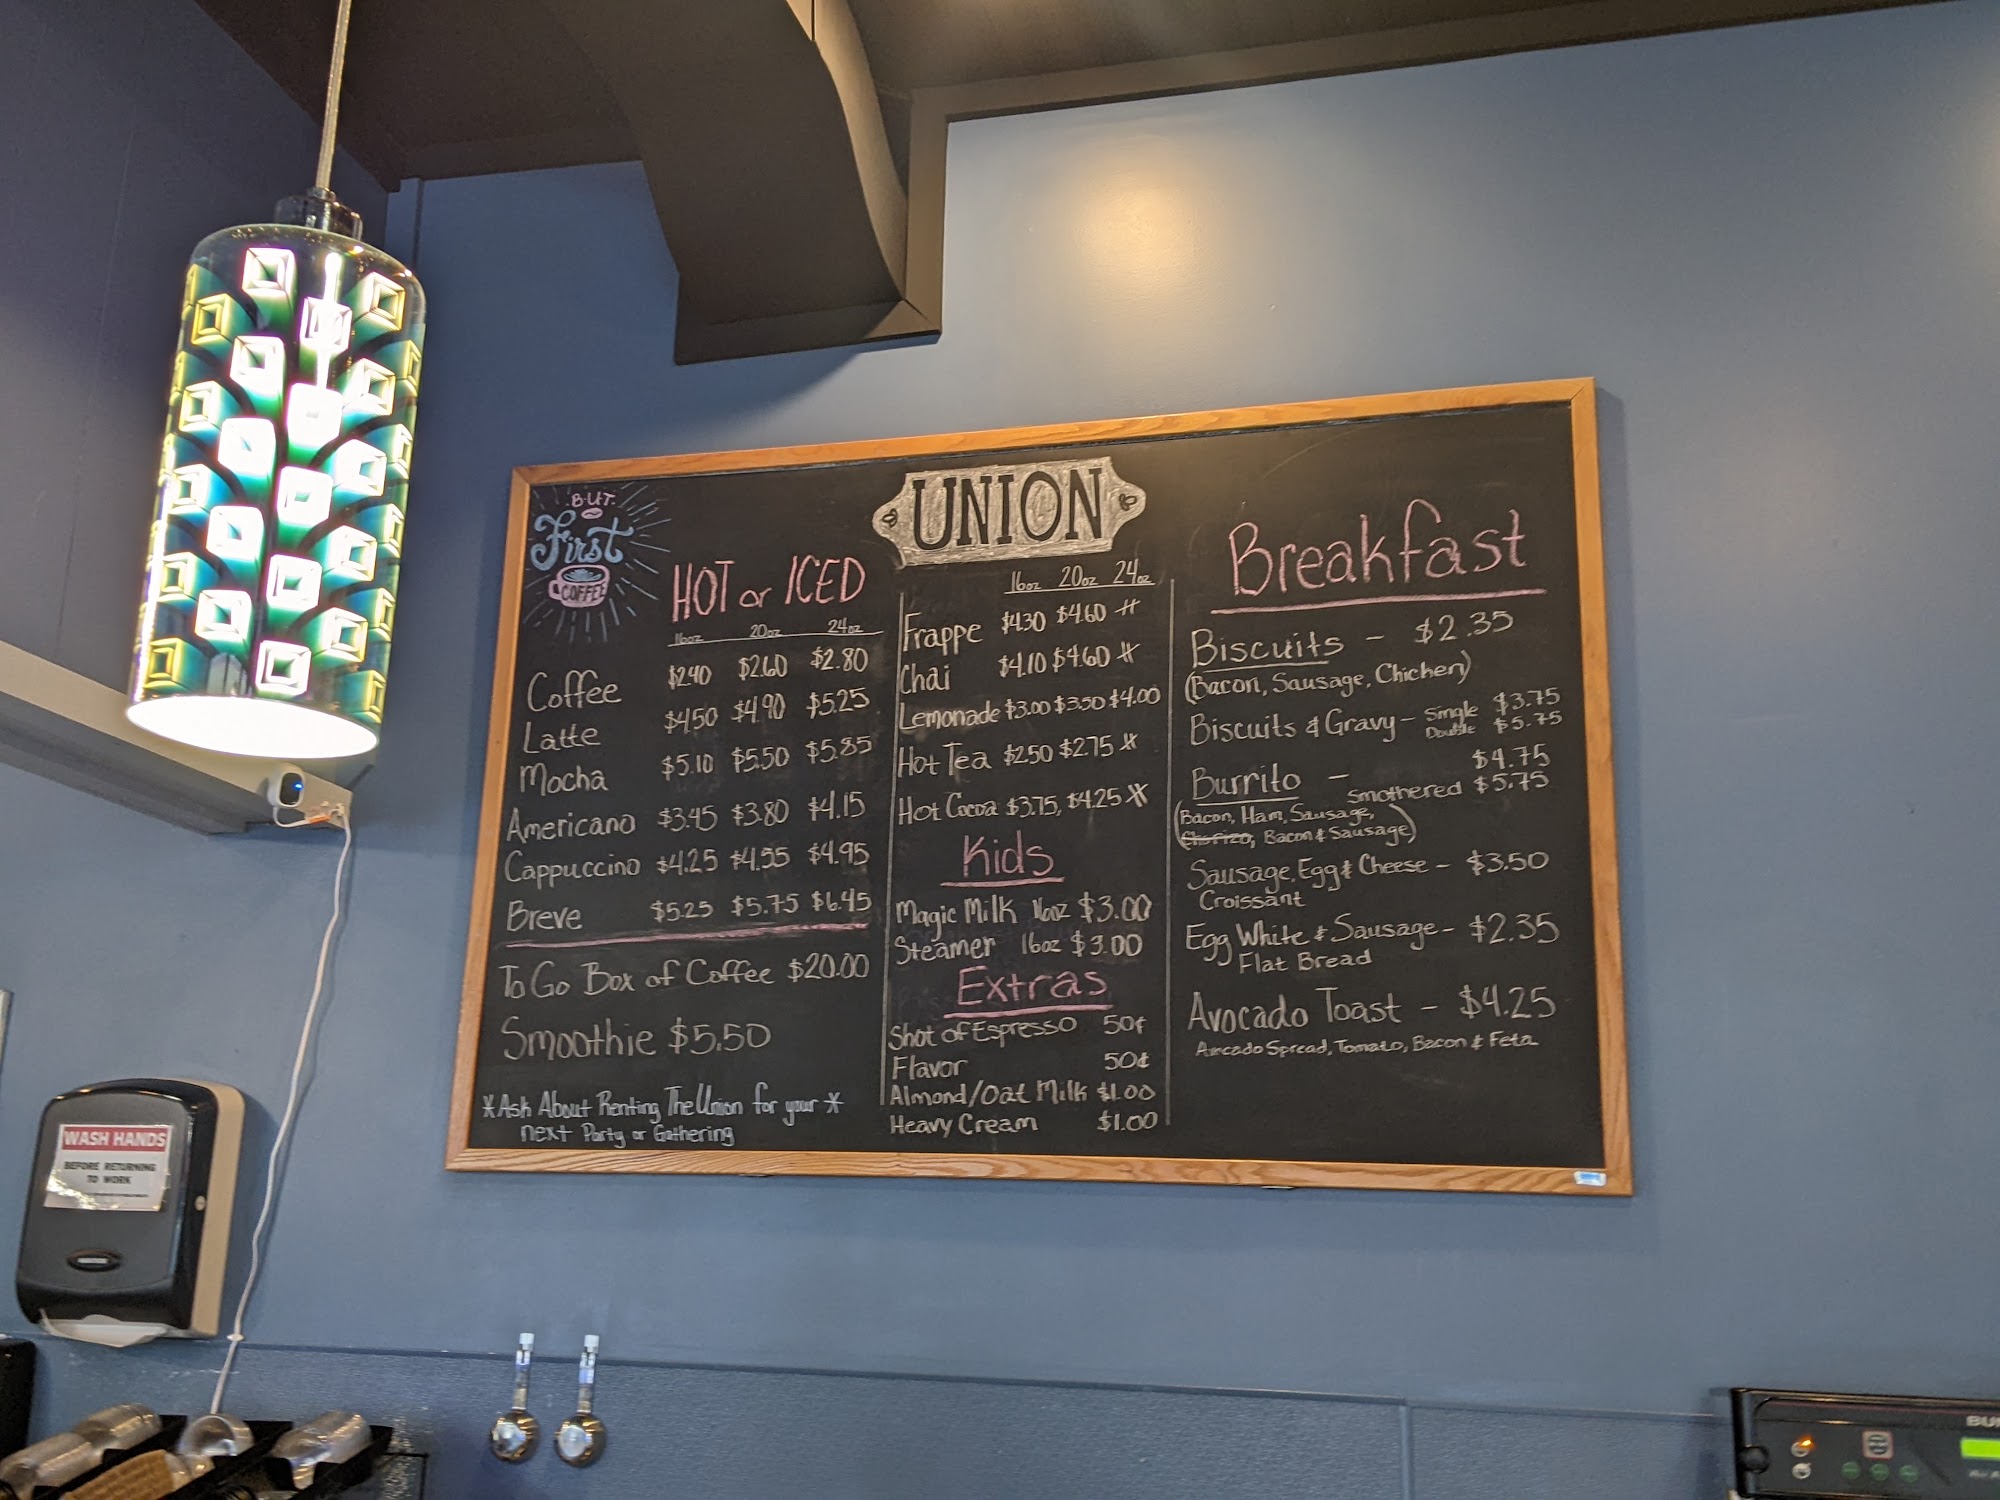 B.U.T.
First
COFFEE
UNION
HOT or ICED
16oz 20oz 24oz
Coffee $2.40 $2.60 $2.80
Latte $4.50 $4.90 $5.25
Mocha $5.10 $5.50 $5.85
Americano $3.45 $3.80 $4.15
Cappuccino $4.25 $4.55 $4.95
Breve $5.25 $5.75 $6.45
To Go Box of Coffee $20.00
Smoothie $5.50
*Ask About Renting The Union for your*
next Party or Gathering
16oz 20oz 24oz
Frappe $4.30 $4.60
Chai $4.10 $4.60
Lemonade $3.00 $3.50 $4.00
Hot Tea $2.50 $2.75
Hot Cocoa $3.75, $4.25
Kids
Magic Milk 16oz $3.00
Steamer 16oz $3.00
Extras
Shot of Espresso 50¢
Flavor 50¢
Almond/Oat Milk $1.00
Heavy Cream $1.00
Breakfast
Biscuits - $2.35
(Bacon, Sausage, Chicken)
Biscuits & Gravy - Single $3.75
Double $5.75
Burrito - $4.75
Smothered $5.75
(Bacon, Ham, Sausage,
Chorizo, Bacon & Sausage)
Sausage, Egg & Cheese - $3.50
Croissant
Egg White & Sausage - $2.35
Flat Bread
Avocado Toast - $4.25
Avocado Spread, Tomato, Bacon & Feta
WASH HANDS
BEFORE RETURNING
TO WORK
BU